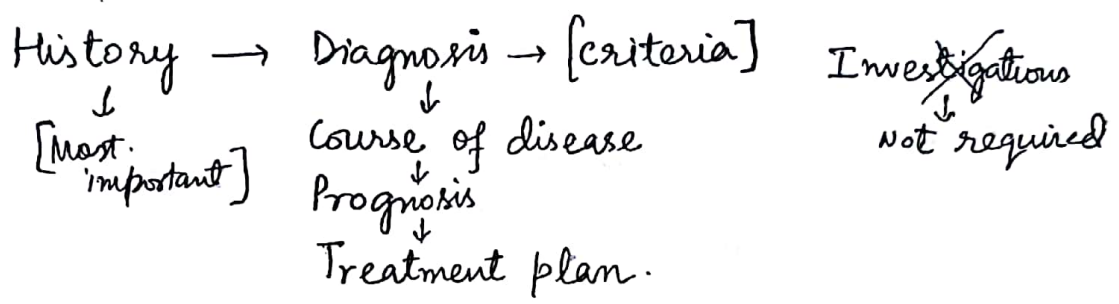 History → Diagnosis → [criteria] Investigations
↓ ↓ ↓
[Most. Course of disease Not required
important] ↓
Prognosis
↓
Treatment plan.